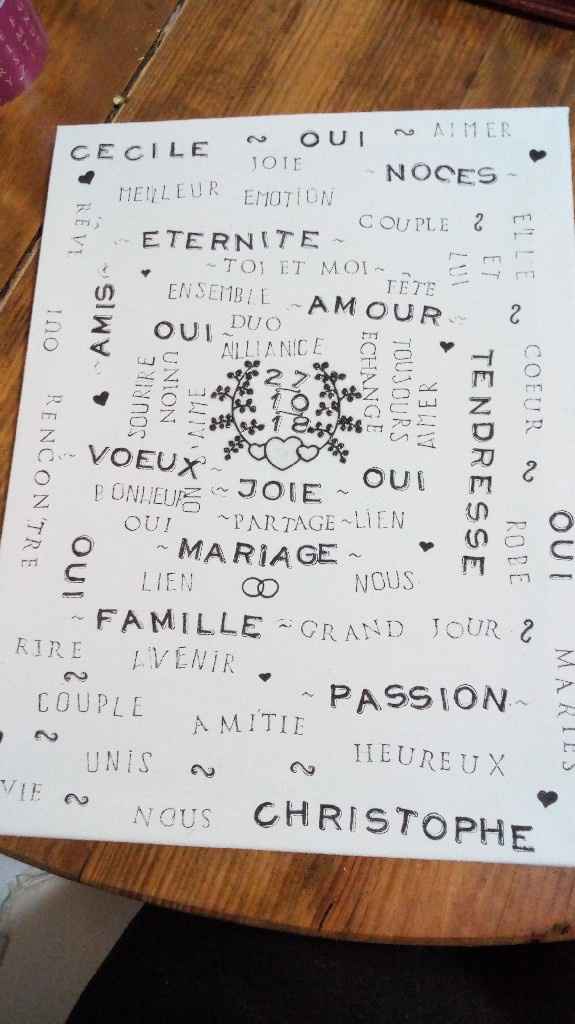 CECILE ~ OUI ~ AIMER
JOIE
~ NOCES ~
MEILLEUR EMOTION
COUPLE
RÊVE
ELLE
ET
LUI
~ ETERNITE ~
~ TOI ET MOI ~
FÊTE
ENSEMBLE
~ AMOUR ~
~ AMIS ~
OUI ~ DUO
ALLIANCE
OUI
SOURIRE
UNION
ECHANGE
TOUJOURS
AIMER
COEUR
TENDRESSE
27
10
18
ON S'AIME
RENCONTRE
~ VOEUX ~
BONHEUR
~ JOIE ~ OUI
OUI ~ PARTAGE ~ LIEN
ROBE
OUI
~ MARIAGE ~
OUI
LIEN NOUS
~ FAMILLE ~ GRAND JOUR ~
RIRE AVENIR
MARIES
COUPLE ~ PASSION ~
AMITIE
UNIS ~ ~ HEUREUX
VIE ~ NOUS CHRISTOPHE